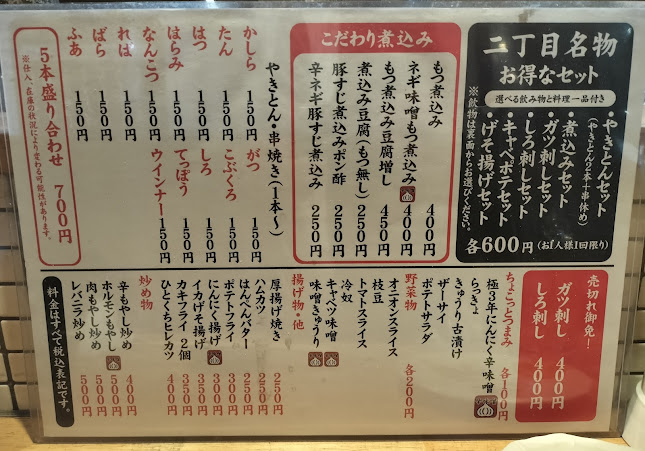 二丁目名物
お得なセット
選べる飲み物と料理一品付き
・やきとんセット
(やきとん2本+串休め)
・煮込みセット
・ガツ刺しセット
・しろ刺しセット
・キャベポテセット
・げそ揚げセット
※飲物は裏面からお選びください。
各600円(お1人様1回限り)
こだわり煮込み
もつ煮込み 400円
ネギ味噌もつ煮込み 400円
もつ煮込み豆腐増し 450円
煮込み豆腐(もつ無し) 250円
豚すじ煮込みポン酢 250円
辛ネギ豚すじ煮込み 250円
やきとん・串焼き(1本〜)
かしら 150円
たん 150円
はつ 150円
はらみ 150円
なんこつ 150円
れは 150円
ばら 150円
ふあ 150円
がつ 150円
こぶくろ 150円
しろ 150円
てっぽう 150円
ウインナー 150円
5本盛り合わせ 700円
※仕入、在庫の状況により変わる可能性があります。
売切れ御免!
ガツ刺し 400円
しろ刺し 400円
ちょこっとつまみ 各100円
らっきょ
極3年にんにく辛味噌
きゅうり古漬け
ザーサイ
ポテサラダ
野菜物 各200円
オニオンスライス
トマトスライス
枝豆
冷奴
キャベツ味噌
味噌きゅうり
揚げ物・他
厚揚げ焼き 250円
ハムカツ 250円
はんぺんバター 200円
ポテトフライ 300円
にんにく揚げ 300円
イカげそ揚げ 350円
カキフライ2個 350円
ひとくちヒレカツ 400円
炒め物
辛もやし炒め 400円
ホルモンもやし 500円
肉もやし炒め 500円
レバニラ炒め 500円
料金はすべて税込表記です。